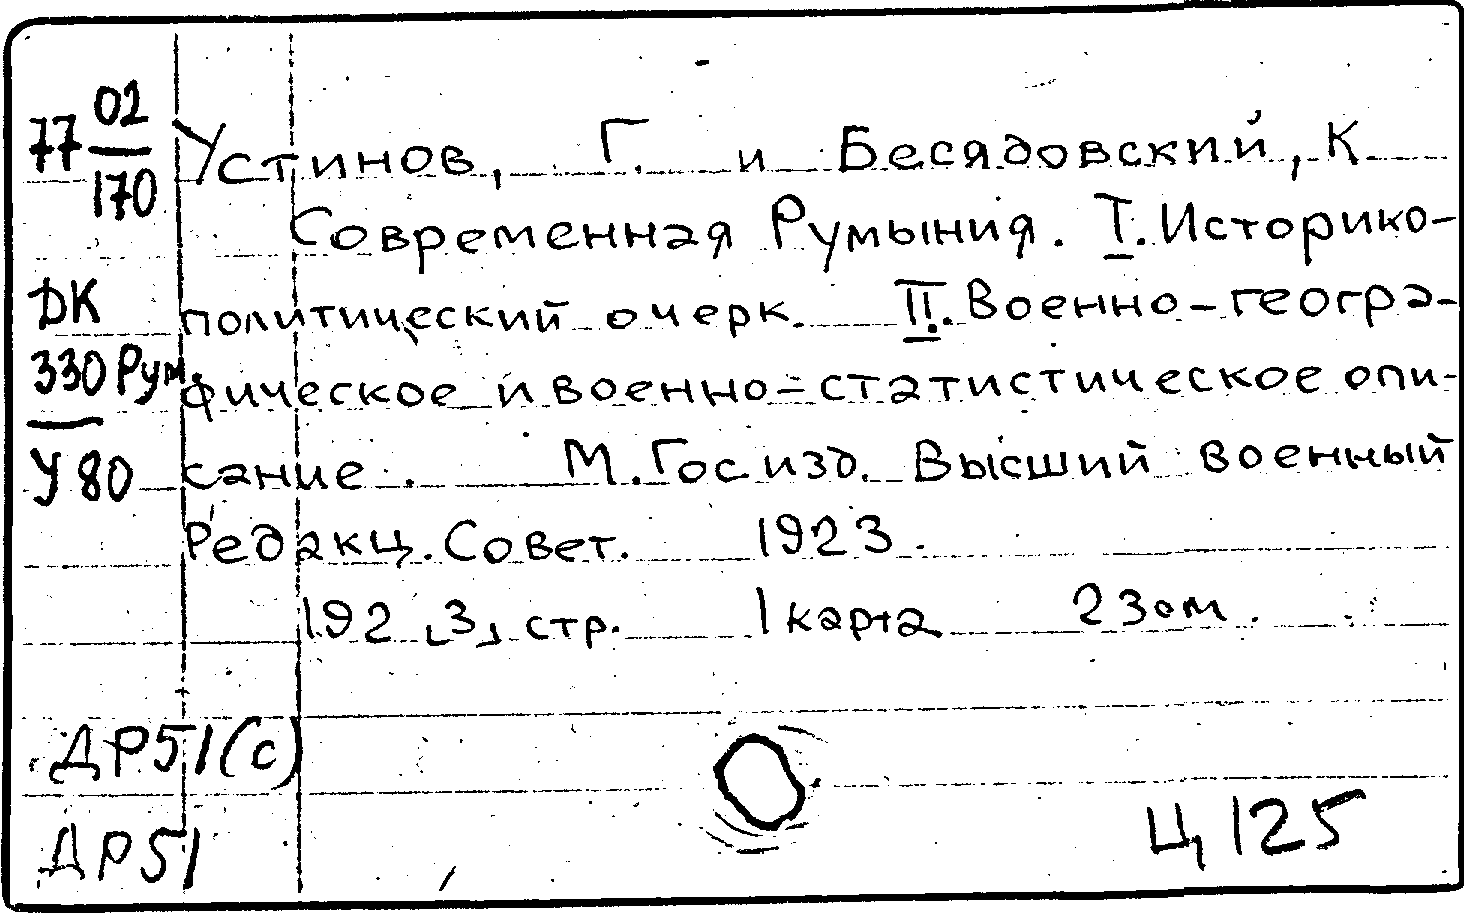 77 02/170
Устинов, Г. и Бесядовский, К
Современная Румыния. I. Историко-
политический очерк. II. Военно-геогра-
фическое и военно-статистическое опи-
сание. М. Госизд. Высший военный
Редакц. Совет. 1923
192 [3] стр. 1 карта 23 см.
DK
330 Рум.
У 80
ДР51(с)
ДР51
Ц 125